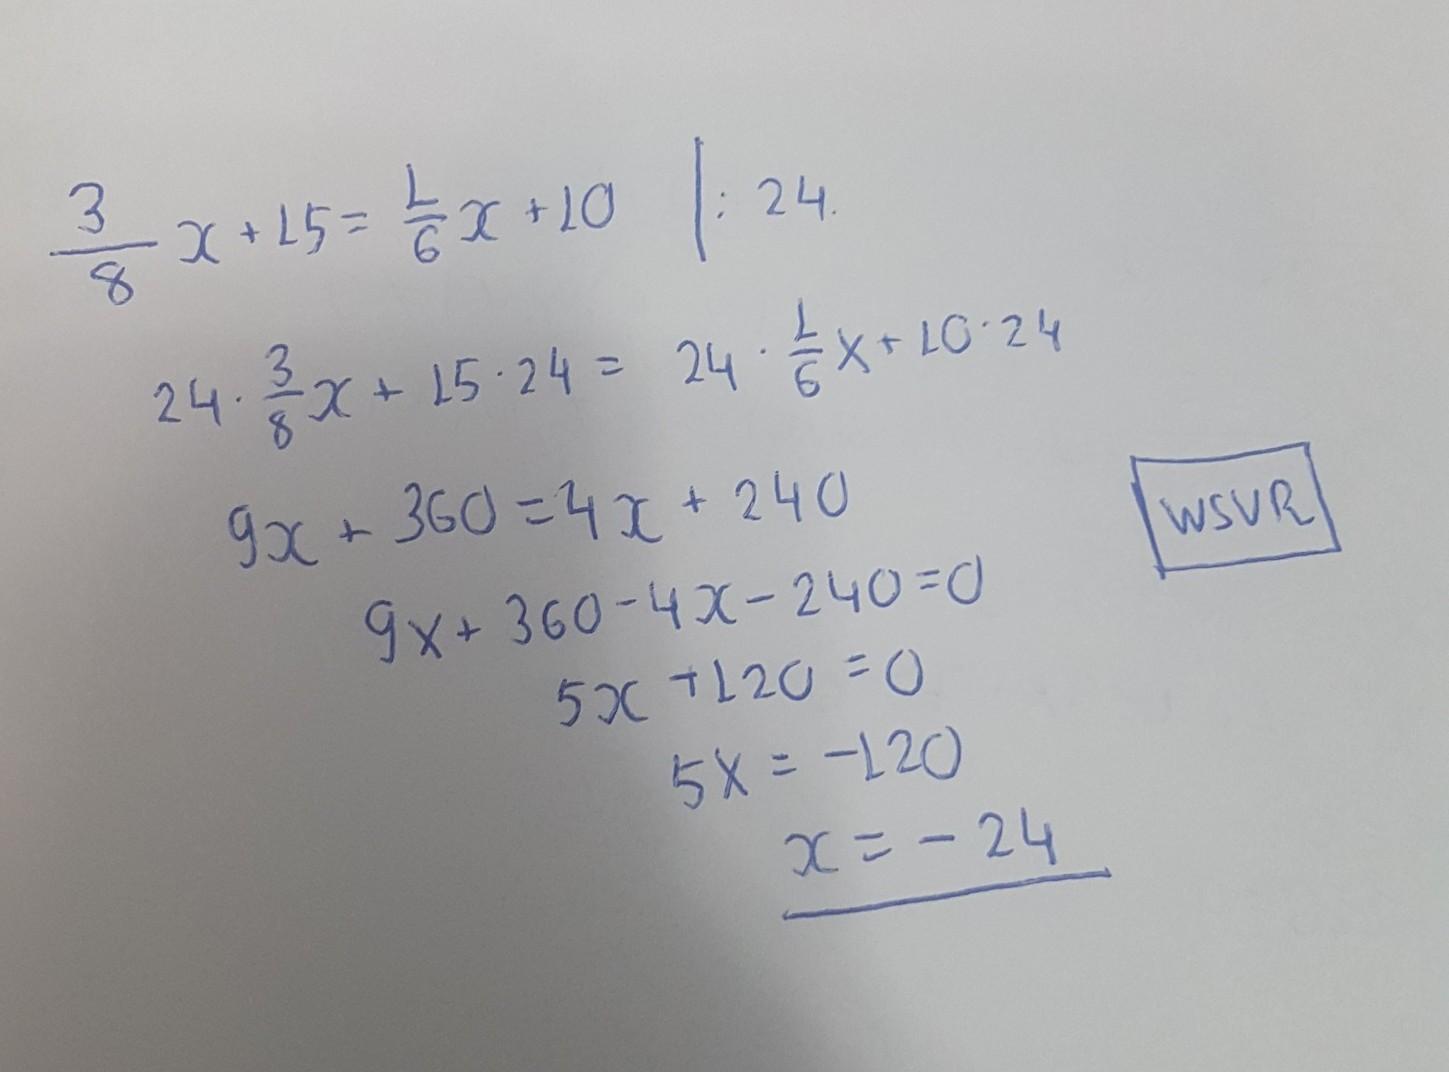 3/8 x + 15 = 1/6 x + 10 | : 24.
24 · 3/8 x + 15 · 24 = 24 · 1/6 x + 10 · 24
9x + 360 = 4x + 240
WSVR
9x + 360 - 4x - 240 = 0
5x + 120 = 0
5x = -120
x = - 24